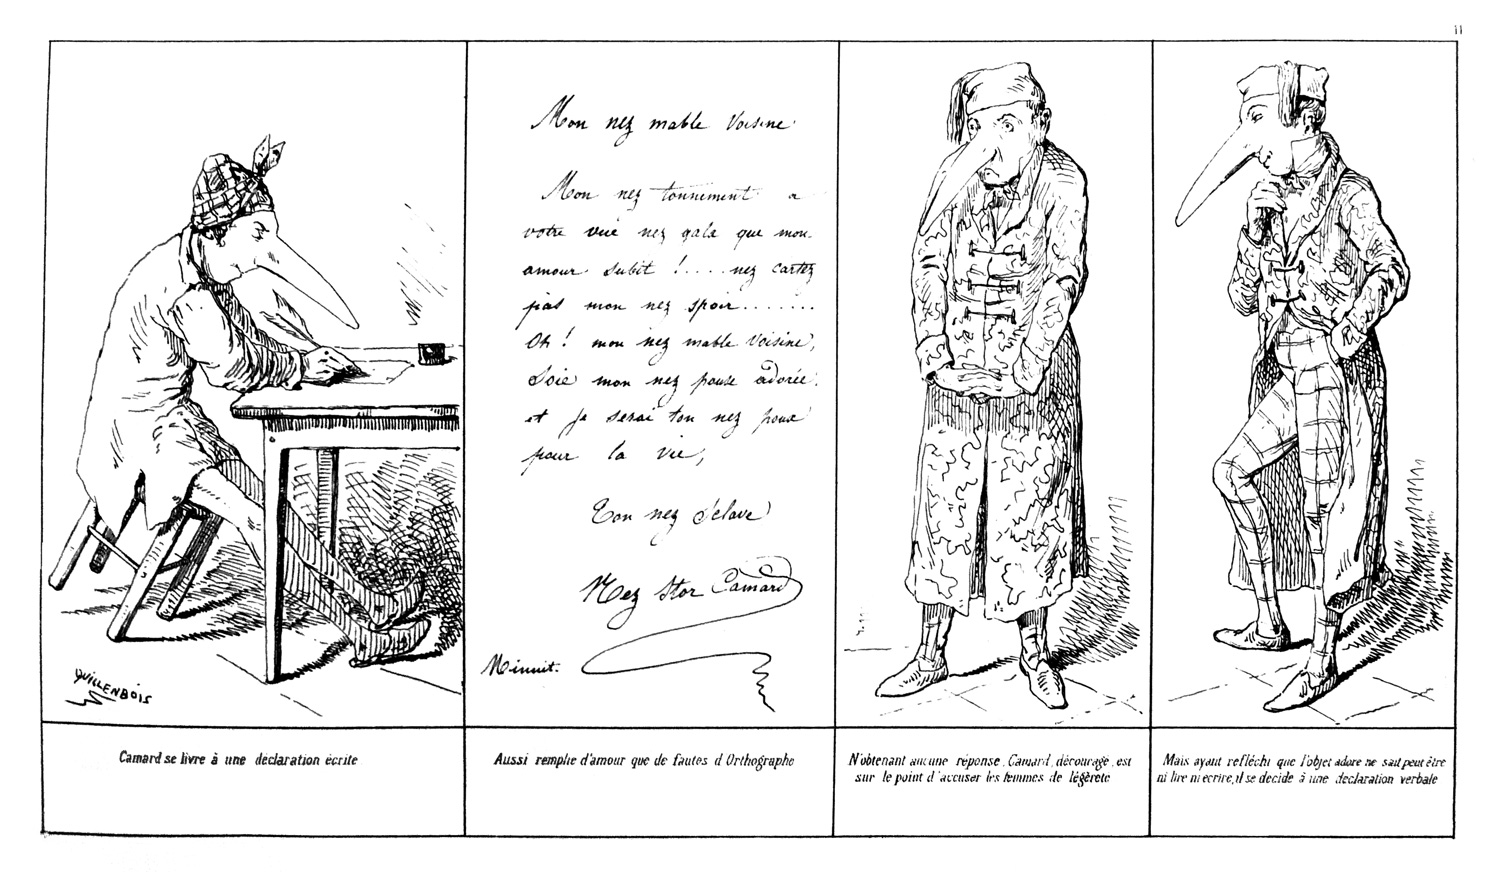 11
QUILLENBOIS
Mon nez mable Voisine
Mon nez tonnement a
votre vue nez gala que mon
amour subit !.... nez cartez
pas mon nez spoir.......
Oh ! mon nez mable Voisine,
Soie mon nez pouse adorée,
et je serai ton nez poux
pour la vie,
Ton nez s'clave
Nez stor Camard
Minuit.
Camard se livre à une déclaration écrite
Aussi remplie d'amour que de fautes d'Orthographe
N'obtenant aucune réponse, Camard, découragé, est
sur le point d'accuser les femmes de légèreté
Mais ayant refléchi que l'objet adore ne sait peut être
ni lire ni ecrire, il se decide à une declaration verbale